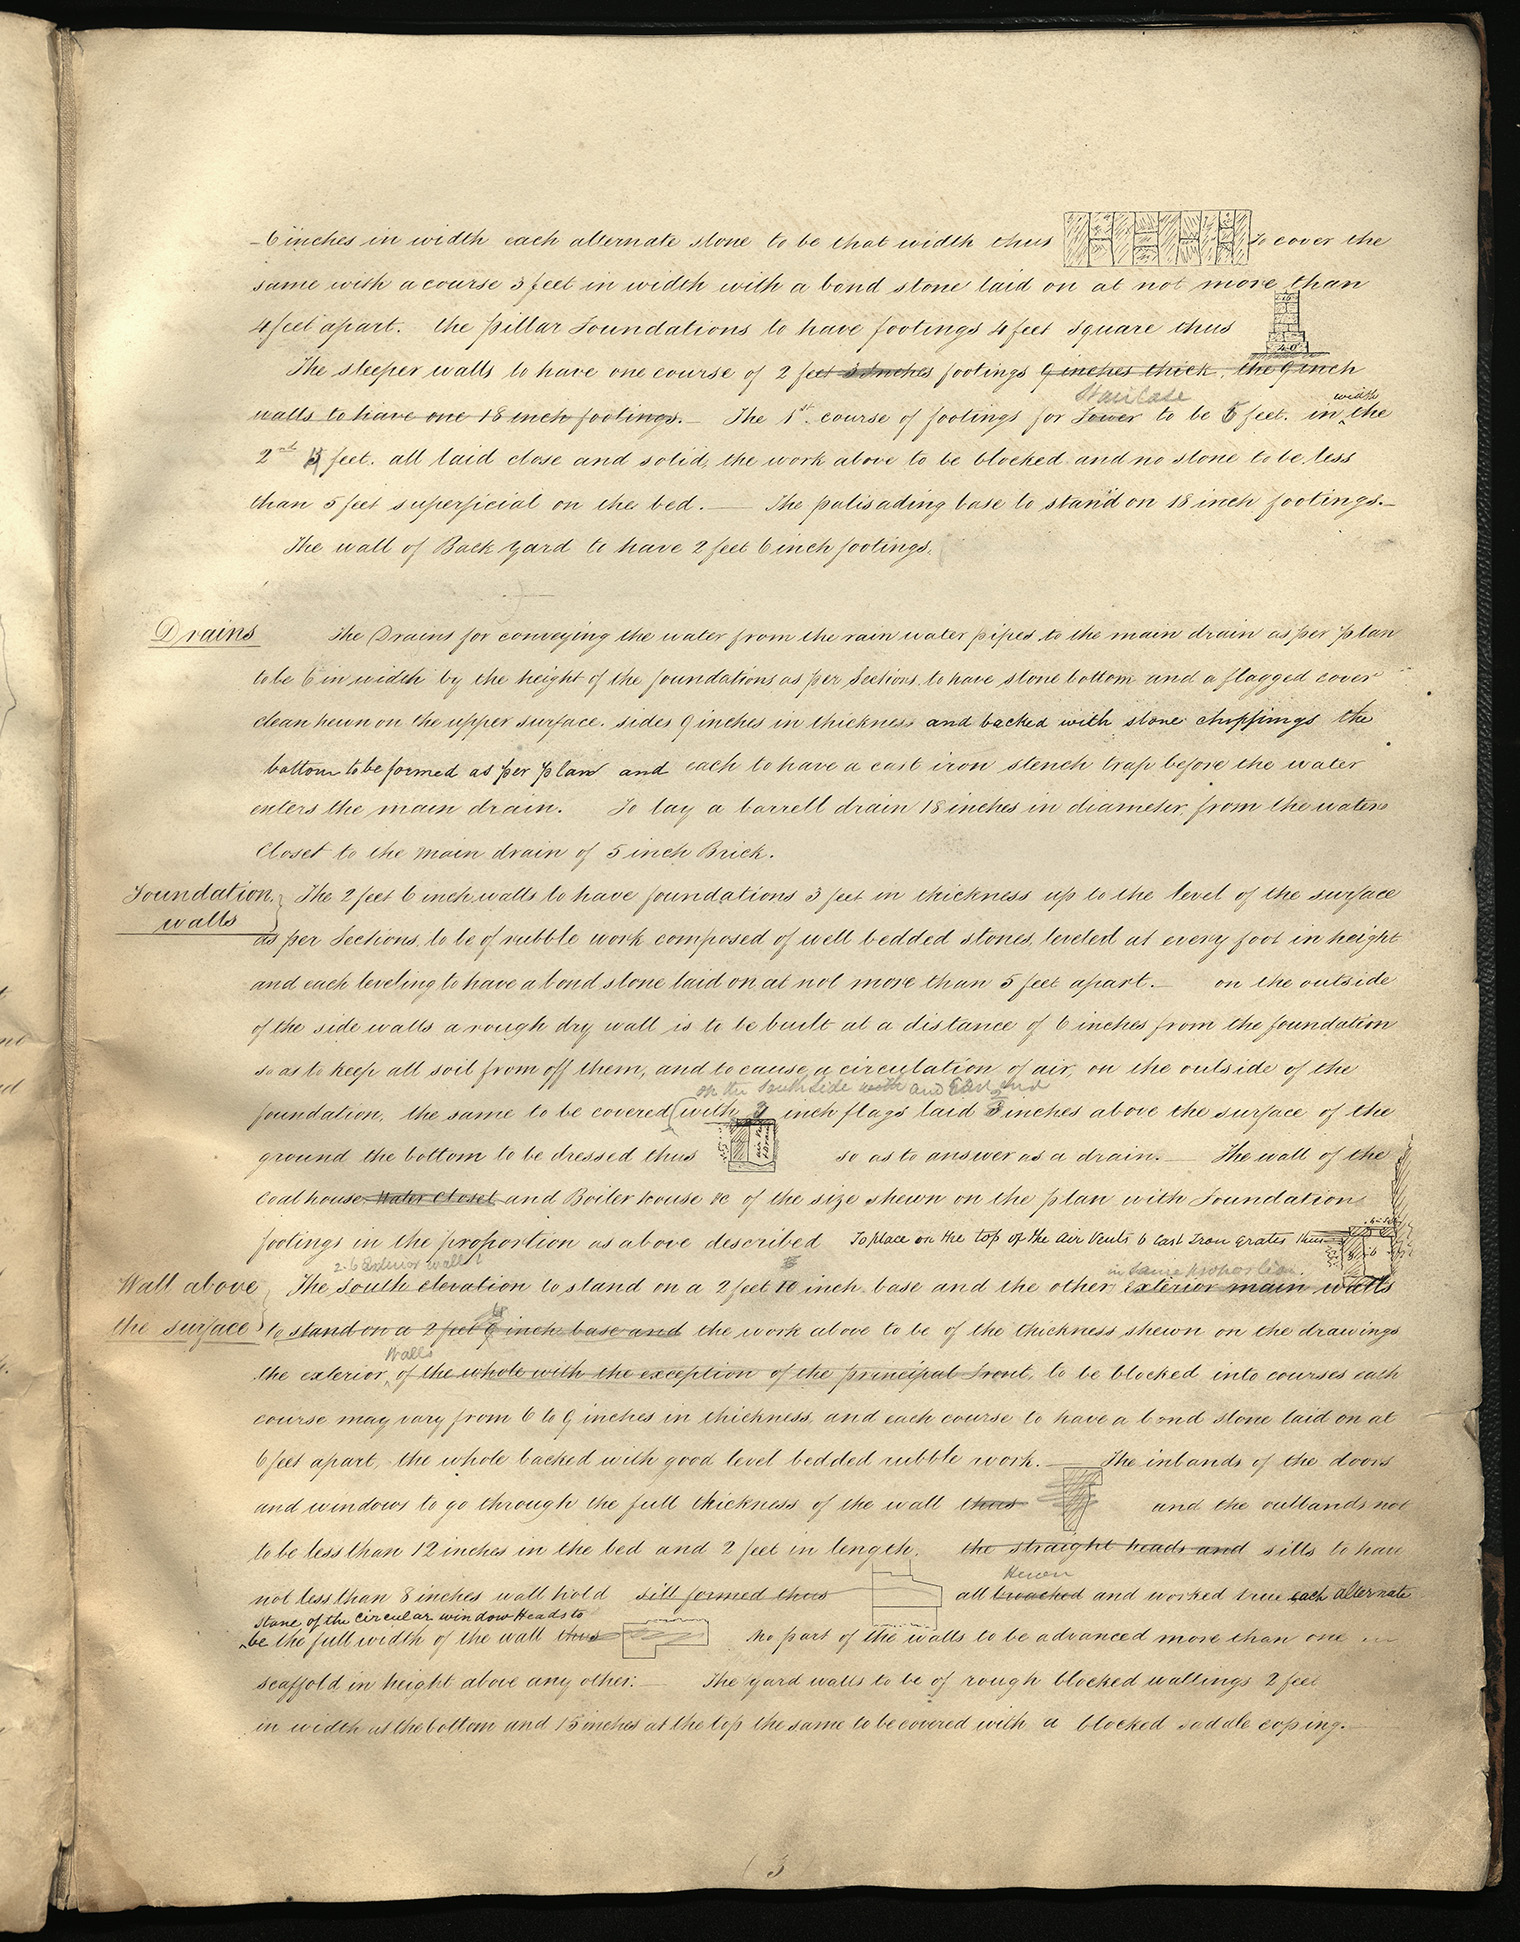 6 inches in width each alternate stone to be that width thus To cover the
same with a course 3 feet in width with a bond stone laid on at not more than
4 feet apart. the pillar Foundations to have footings 4 feet square thus
4.0
The sleeper walls to have one course of 2 feet 3 inches footings 9 inches thick, the 9 inch
Staircase
width
walls to have one 18 inch footings. The 1st. course of footings for Tower to be 5 feet. in the
2nd feet. all laid close and solid, the work above to be blocked and no stone to be less
than 5 feet superficial on the bed. The palisading base to stand on 18 inch footings.
The wall of Back Yard to have 2 feet 6 inch footings.
Drains The Drains for conveying the water from the rain water pipes to the main drain as per plan
to be 6 in width by the height of the foundations as per Sections, to have stone bottom and a flagged cover
clean hewn on the upper surface. sides 9 inches in thickness and backed with stone chippings the
bottom to be formed as per plan and each to have a cast iron stench trap before the water
enters the main drain. To lay a barrell drain 18 inches in diameter from the water
Closet to the main drain of 5 inch Brick.
Foundation walls
The 2 feet 6 inch walls to have foundations 3 feet in thickness up to the level of the surface
as per Sections, to be of rubble work composed of well bedded stones, leveled at every foot in height
and each leveling to have a bond stone laid on at not more than 5 feet apart. on the outside
of the side walls a rough dry wall is to be built at a distance of 6 inches from the foundation
so as to keep all soil from off them, and to cause a circulation of air, on the outside of the
on the South Side and East End
foundation, the same to be covered with 3 inch flags laid 3 inches above the surface of the
ground the bottom to be dressed thus so as to answer as a drain. The wall of the
Coal house Water Closet and Boiler House &c of the size shewn on the plan with Foundation
footings in the proportion as above described To place on the top of the air vents 6 Cast Iron grates thus
2.6 Exterior walls
in same proportion.
Wall above the surface
The south elevation to stand on a 2 feet 10 inch base and the other Exterior main walls
to stand on a 2 feet 9 inch base and the work above to be of the thickness shewn on the drawings
Walls
the exterior of the whole with the exception of the principal Front, to be blocked into courses each
course may vary from 6 to 9 inches in thickness, and each course to have a bond stone laid on at
6 feet apart, the whole backed with good level bedded rubble work. The inbands of the doors
and windows to go through the full thickness of the wall thus and the outbands not
to be less than 12 inches in the bed and 2 feet in length. the straight heads and sills to have
Hewn
not less than 8 inches wall hold sill formed thus all broached and worked true each alternate
stone of the circular window Heads to
be the full width of the wall thus No part of the walls to be advanced more than one
scaffold in height above any other. The yard walls to be of rough blocked wallings 2 feet
in width at the bottom and 15 inches at the top the same to be covered with a blocked saddle coping.
3